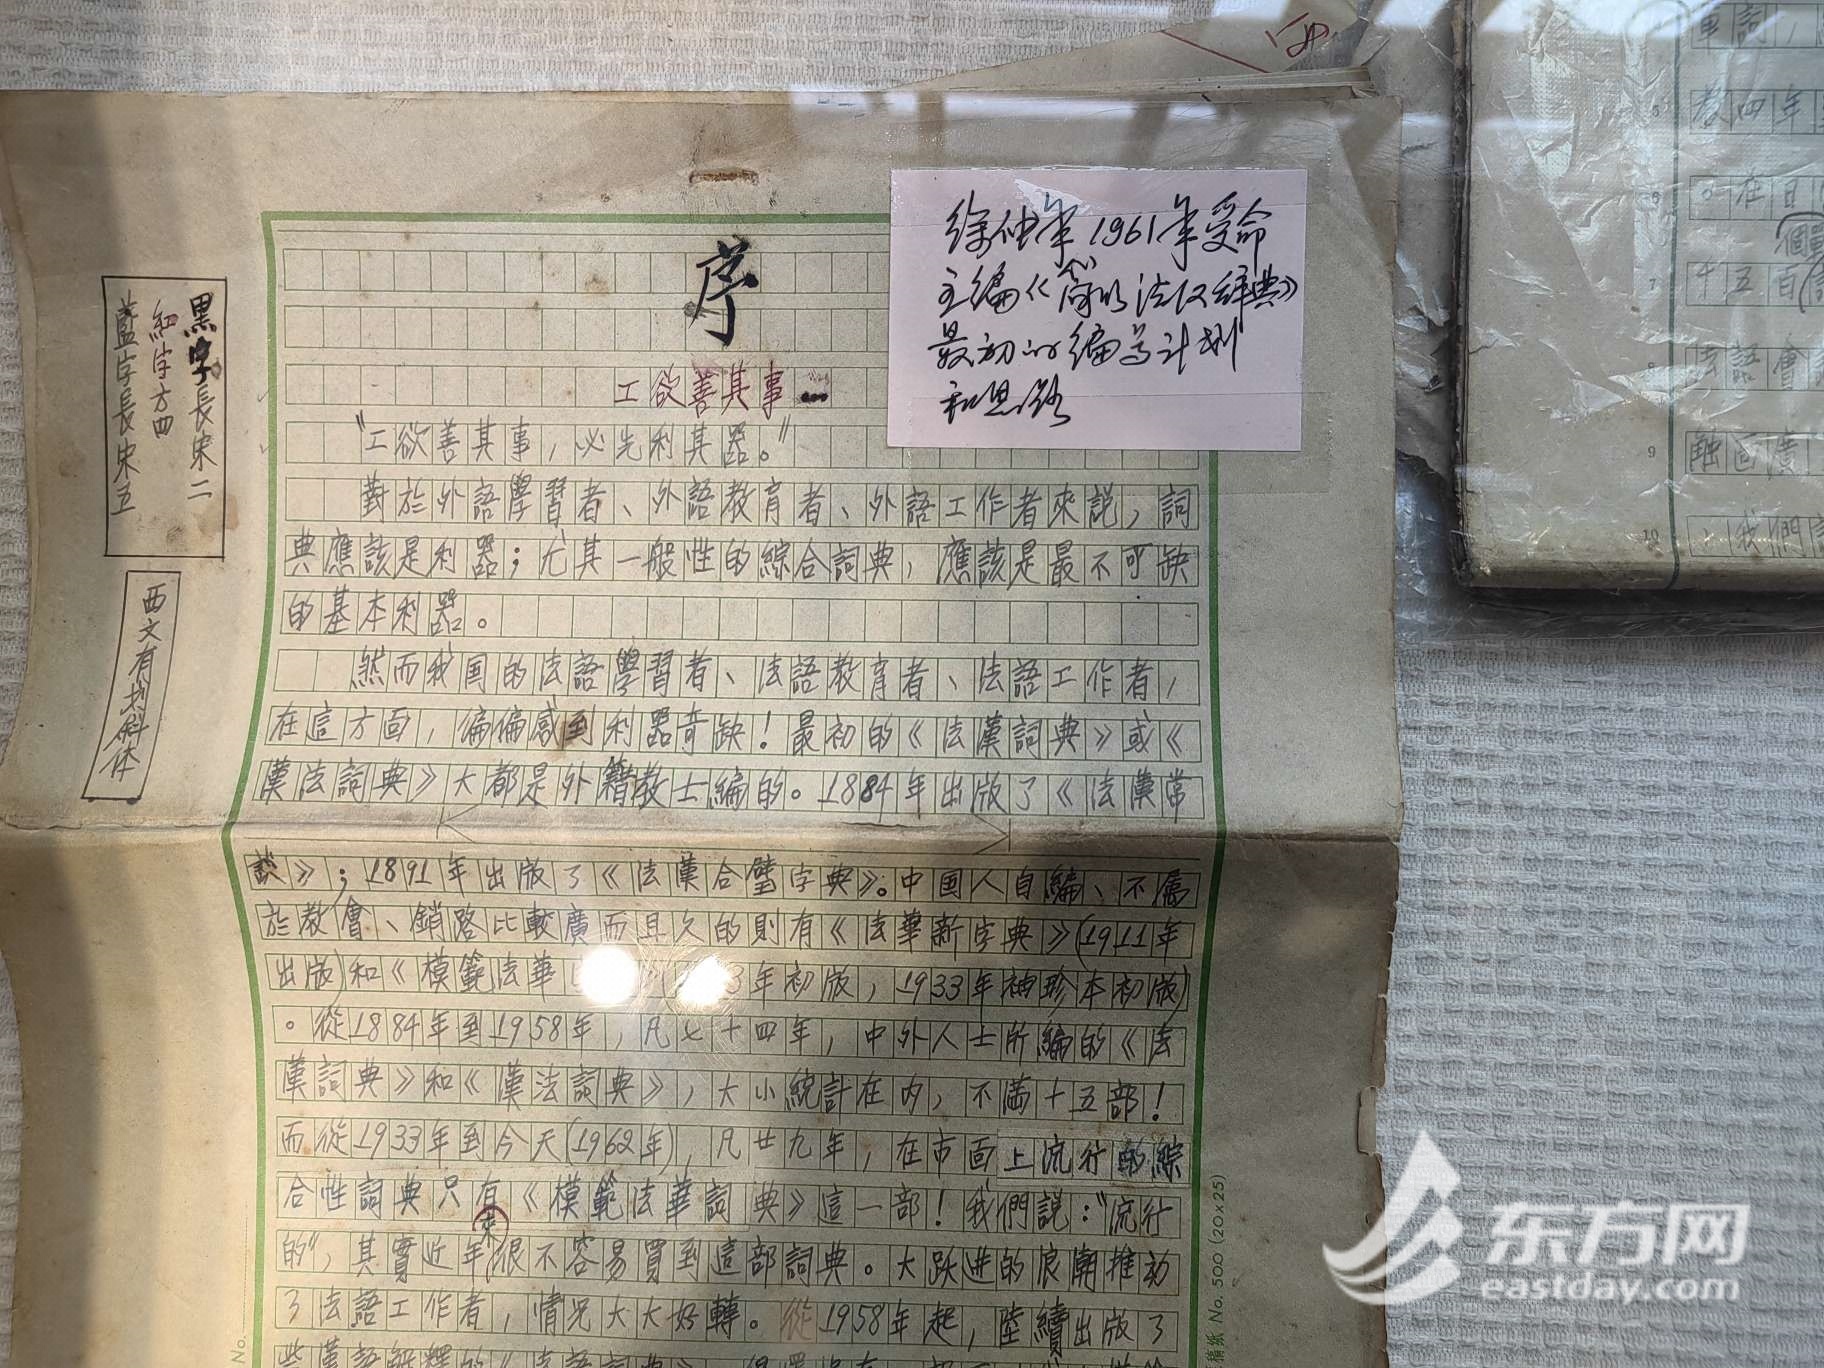 徐仲年1961年受命
主编《简明法汉辞典》
最初的编写计划
和思路
黑字長宋二
紅字方四
藍字長宋五
西文有划斜体
序
工欲善其事
“工欲善其事，必先利其器。”
對於外語學習者、外語教育者、外語工作者來説，詞
典應該是利器；尤其一般性的綜合詞典，應該是最不可缺
的基本利器。
然而我国的法語學習者、法語教育者、法語工作者，
在這方面，偏偏感到利器奇缺！最初的《法漢詞典》或《
漢法詞典》大都是外籍教士編的。1884年出版了《法漢常
談》；1891年出版了《法漢合璧字典》。中国人自編、不属
於教會、銷路比較廣而且久的則有《法華新字典》(1911年
出版)和《模範法華 3年初版，1933年袖珍本初版)
。從1884年到1958年，凡七十四年，中外人士所編的《法
漢詞典》和《漢法詞典》，大小統計在内，不满十五部！
而從1933年到今天(1962年)，凡廿九年，在市面上流行的綜
合性詞典只有《模範法華詞典》這一部！我們説：“流行
的”，其實近年來很不容易買到這部詞典。大跃进的浪潮推动
了法語工作者，情况大大好轉。從1958年起，陸續出版了
稿紙 No. 500 (20x25)
No.
單詞，
5 教四年
6 。在日
個單
7 十五百
8 法語會
9
10 、我們
东方网
eastday.com